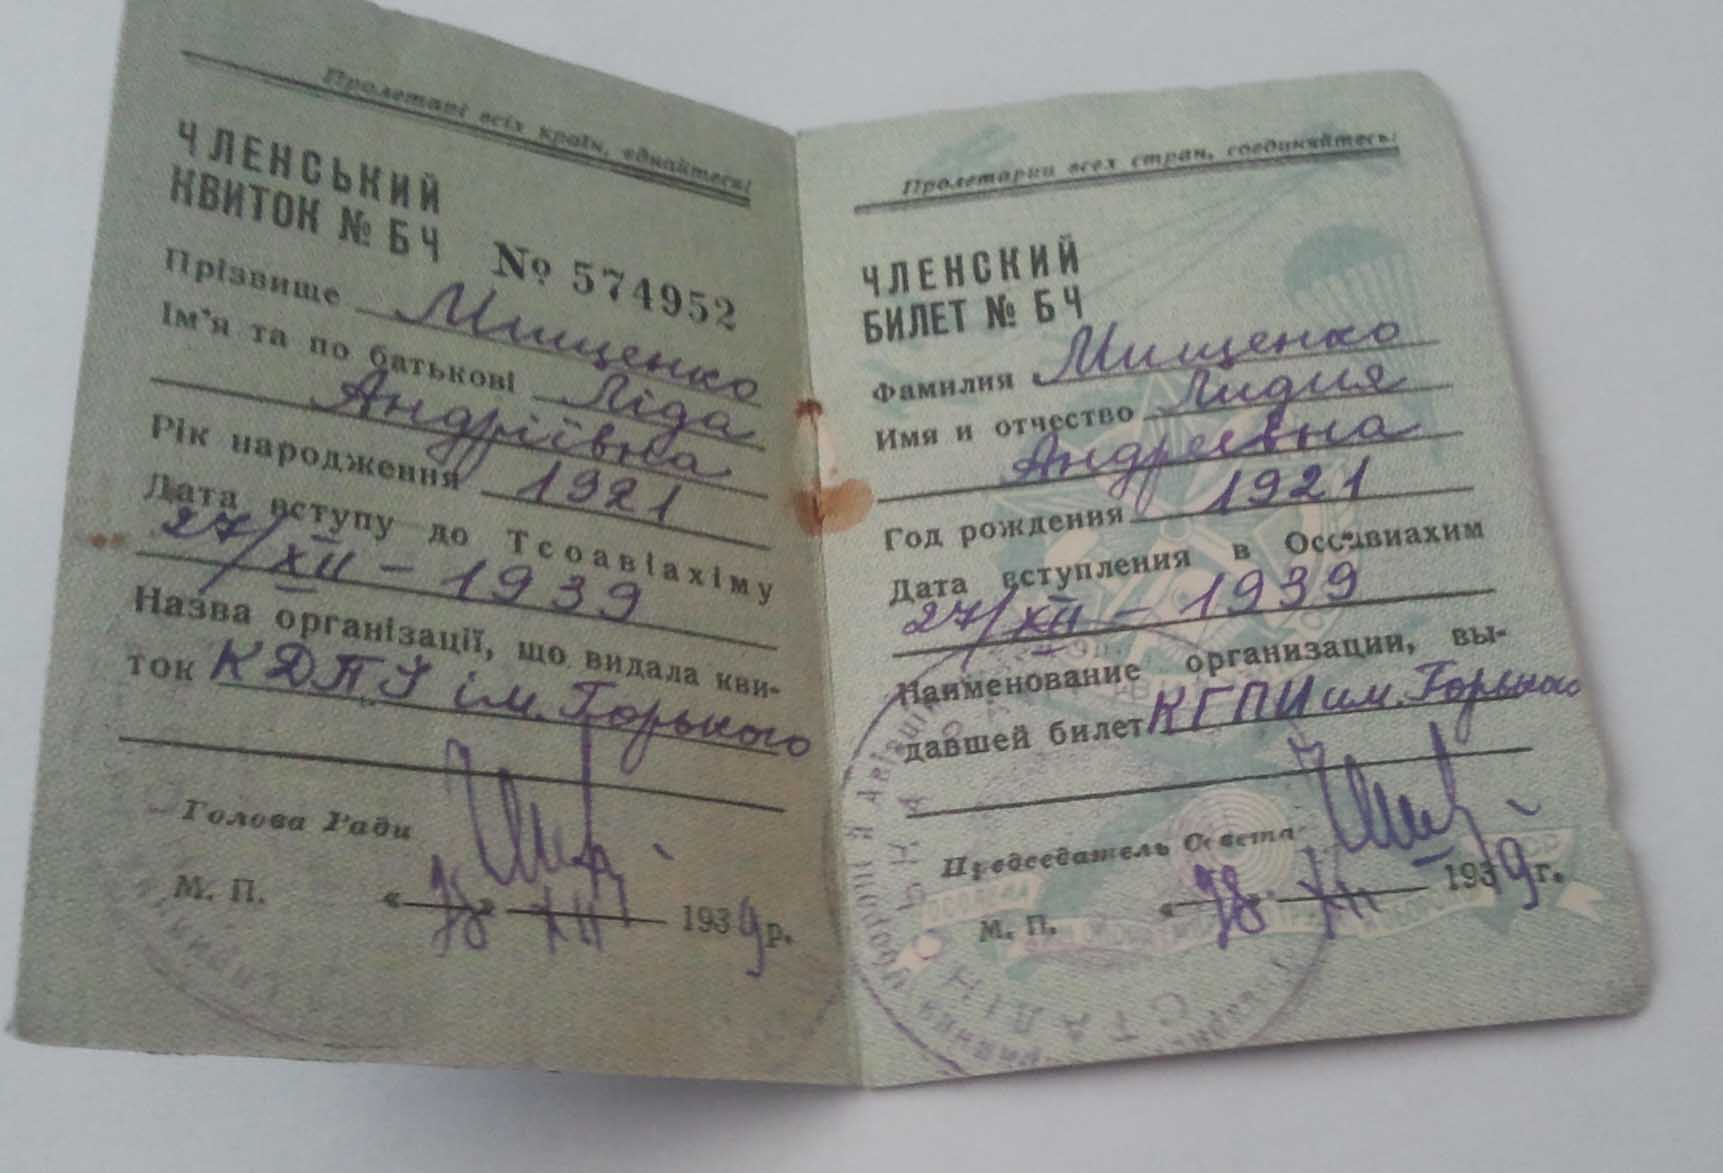 Пролетарі всіх країн, єднайтесь!
ЧЛЕНСЬКИЙ
КВИТОК № БЧ № 574952
Прізвище Мищенко
Ім'я та по батькові Ліда
Андріївна
Рік народження 1921
Дата вступу до Тсоавіахіму
27/XII - 1939
Назва організації, що видала кви-
ток КДПУ ім. Горького
Голова Ради
М. П. « 28 » XII 1939 р.
Пролетарии всех стран, соединяйтесь!
ЧЛЕНСКИЙ
БИЛЕТ № БЧ
Фамилия Мищенко
Имя и отчество Лидия
Андреевна
Год рождения 1921
Дата вступления в Осоавиахим
27/XII - 1939
Наименование организации, вы-
давшей билет КГПИ им. Горького
Председатель Совета
М. П. « 28 » XII 1939 г.
СТАЛІН